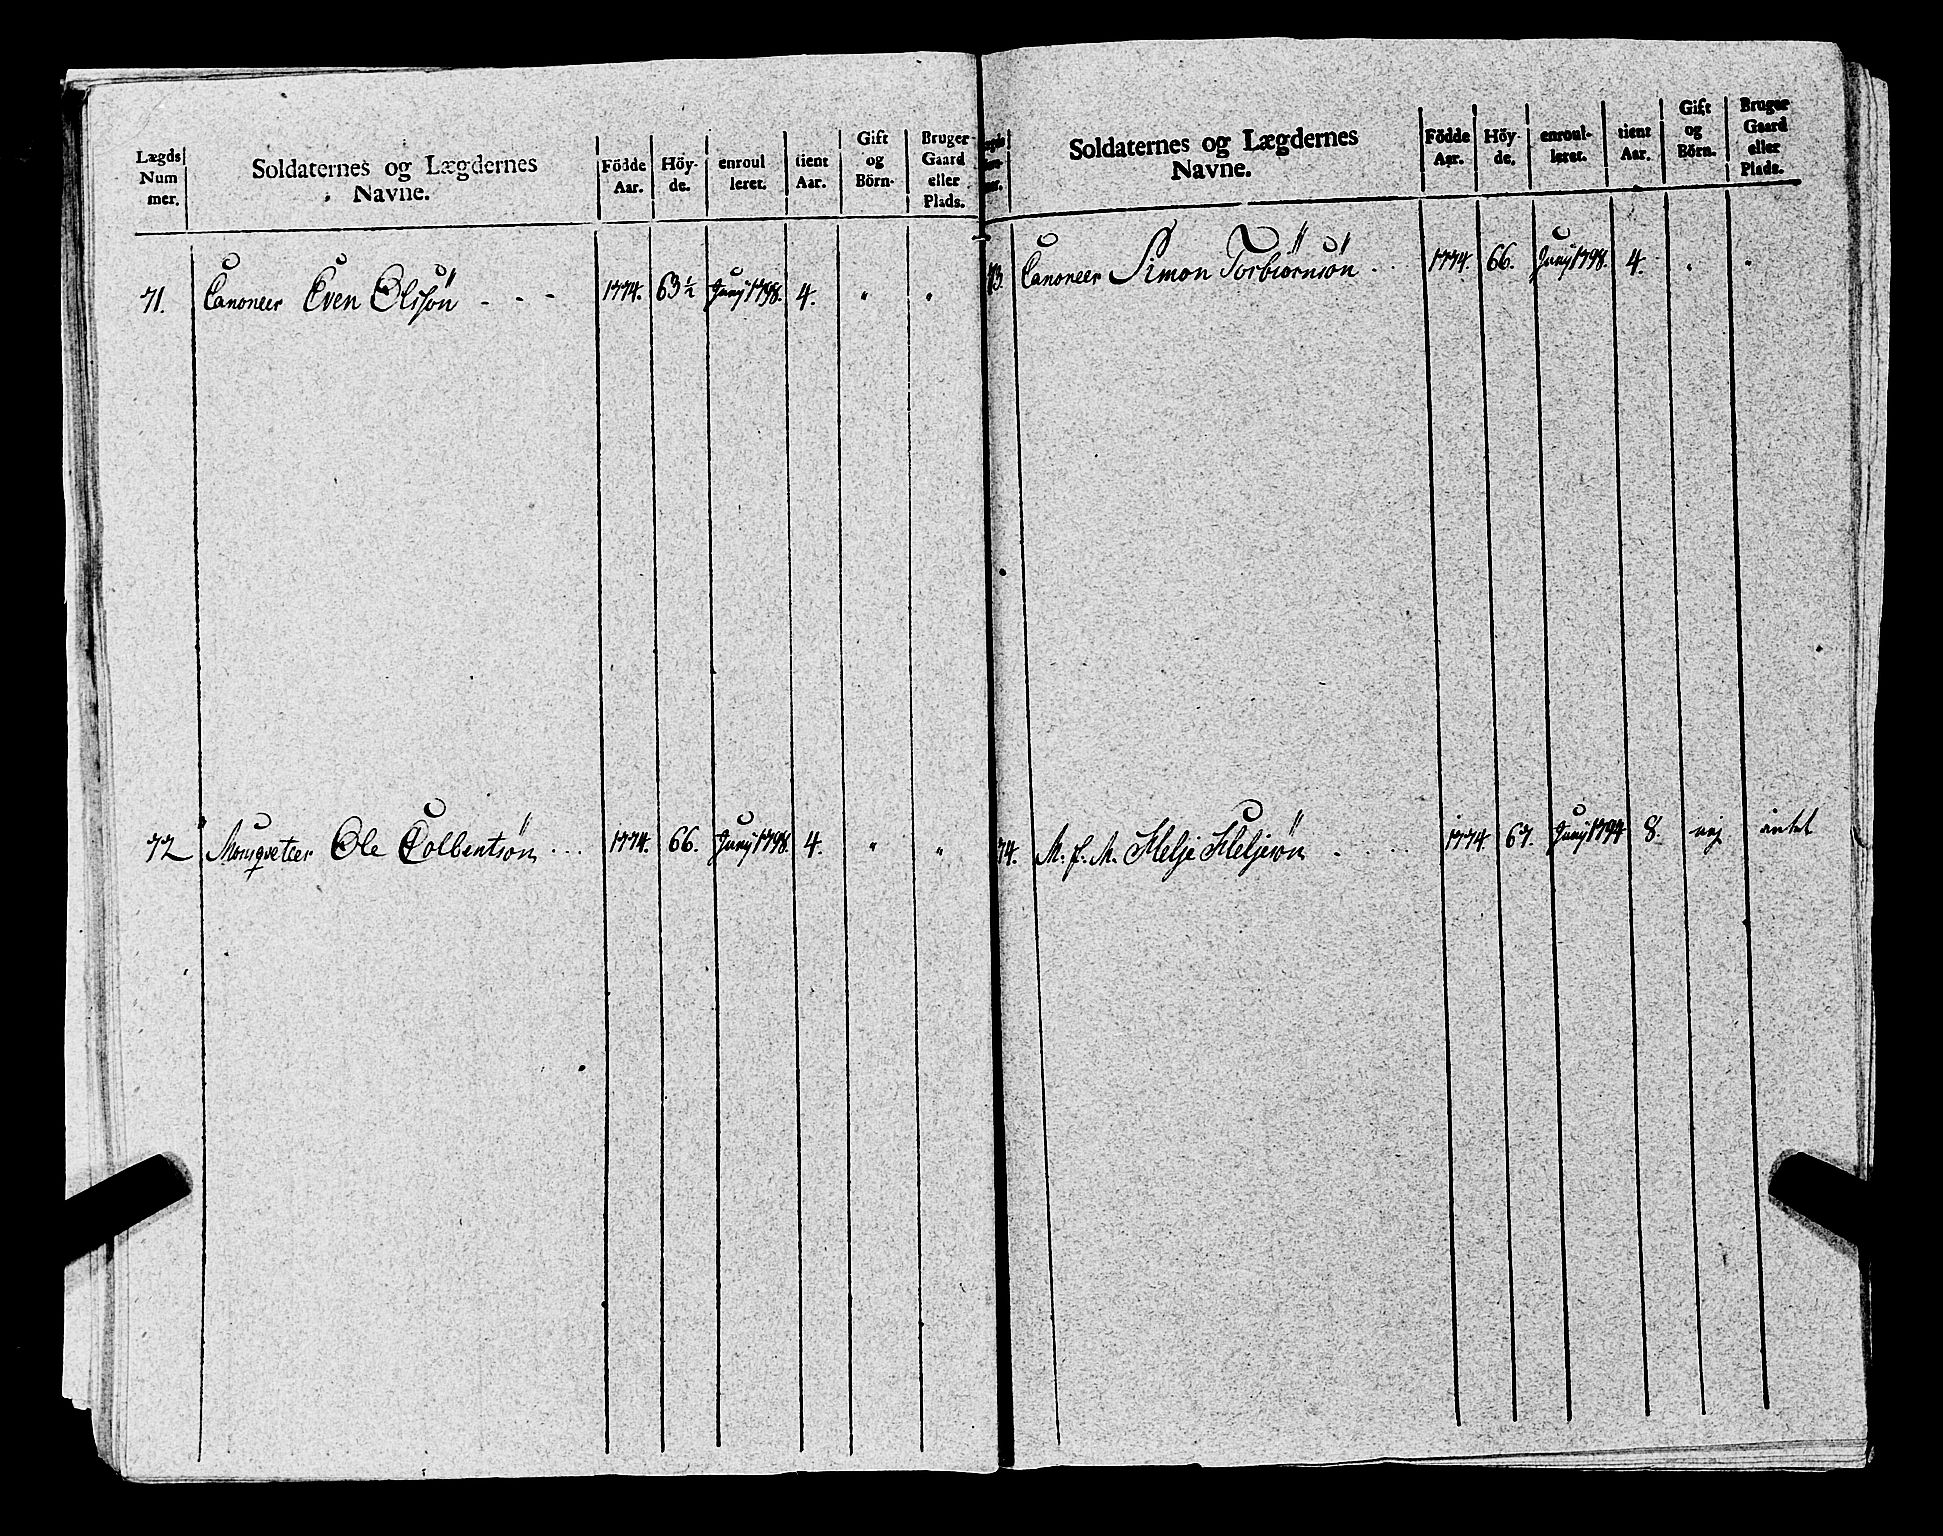 Lægds Nummer. | Soldaternes og Lægdernes Navne. | Födde Aar. | Höyde. | enroulleret. | tient Aar. | Gift og Börn. | Bruger Gaard eller Plads.
71. Canoneer Even Olssön - - - 1774. 63 ½ Junÿ 1798. 4. " "
72 Mousqveteer Ole Colbentsön ... 1774. 66. Junÿ 1798. 4. " "
Soldaternes og Lægdernes Navne. | Födde Aar. | Höyde. | enroulleret. | tient Aar. | Gift og Börn. | Bruger Gaard eller Plads.
73. Canoneer Simon Torbiörnsön .. 1774. 66. Junÿ 1798. 4. " "
74. M. f. M. Helje Heljesön . . . . 1774. 67. Junÿ 1794 8. nej intet